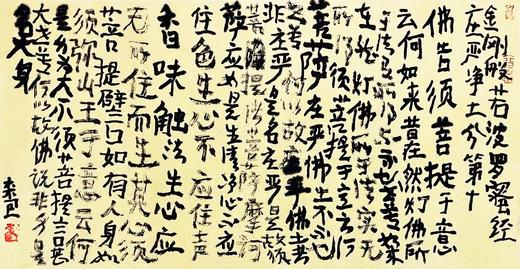 金刚般若波罗蜜经
庄严净土分第十
佛告须菩提于意
云何如来昔在然灯佛所
于法有所得不也世尊
在然灯佛所于法实无
所得须菩提于意云何
菩萨庄严佛土不不也
世尊何以故庄严佛土者
非庄严是名庄严是故须
菩提诸菩萨摩诃
萨应如是生清净心不应
住色生心不应住声
香味触法生心应
无所住而生其心须
菩提譬如有人身如
须弥山王于意云何
是身为大不须菩提言甚
大世尊何以故佛说非身是
名身